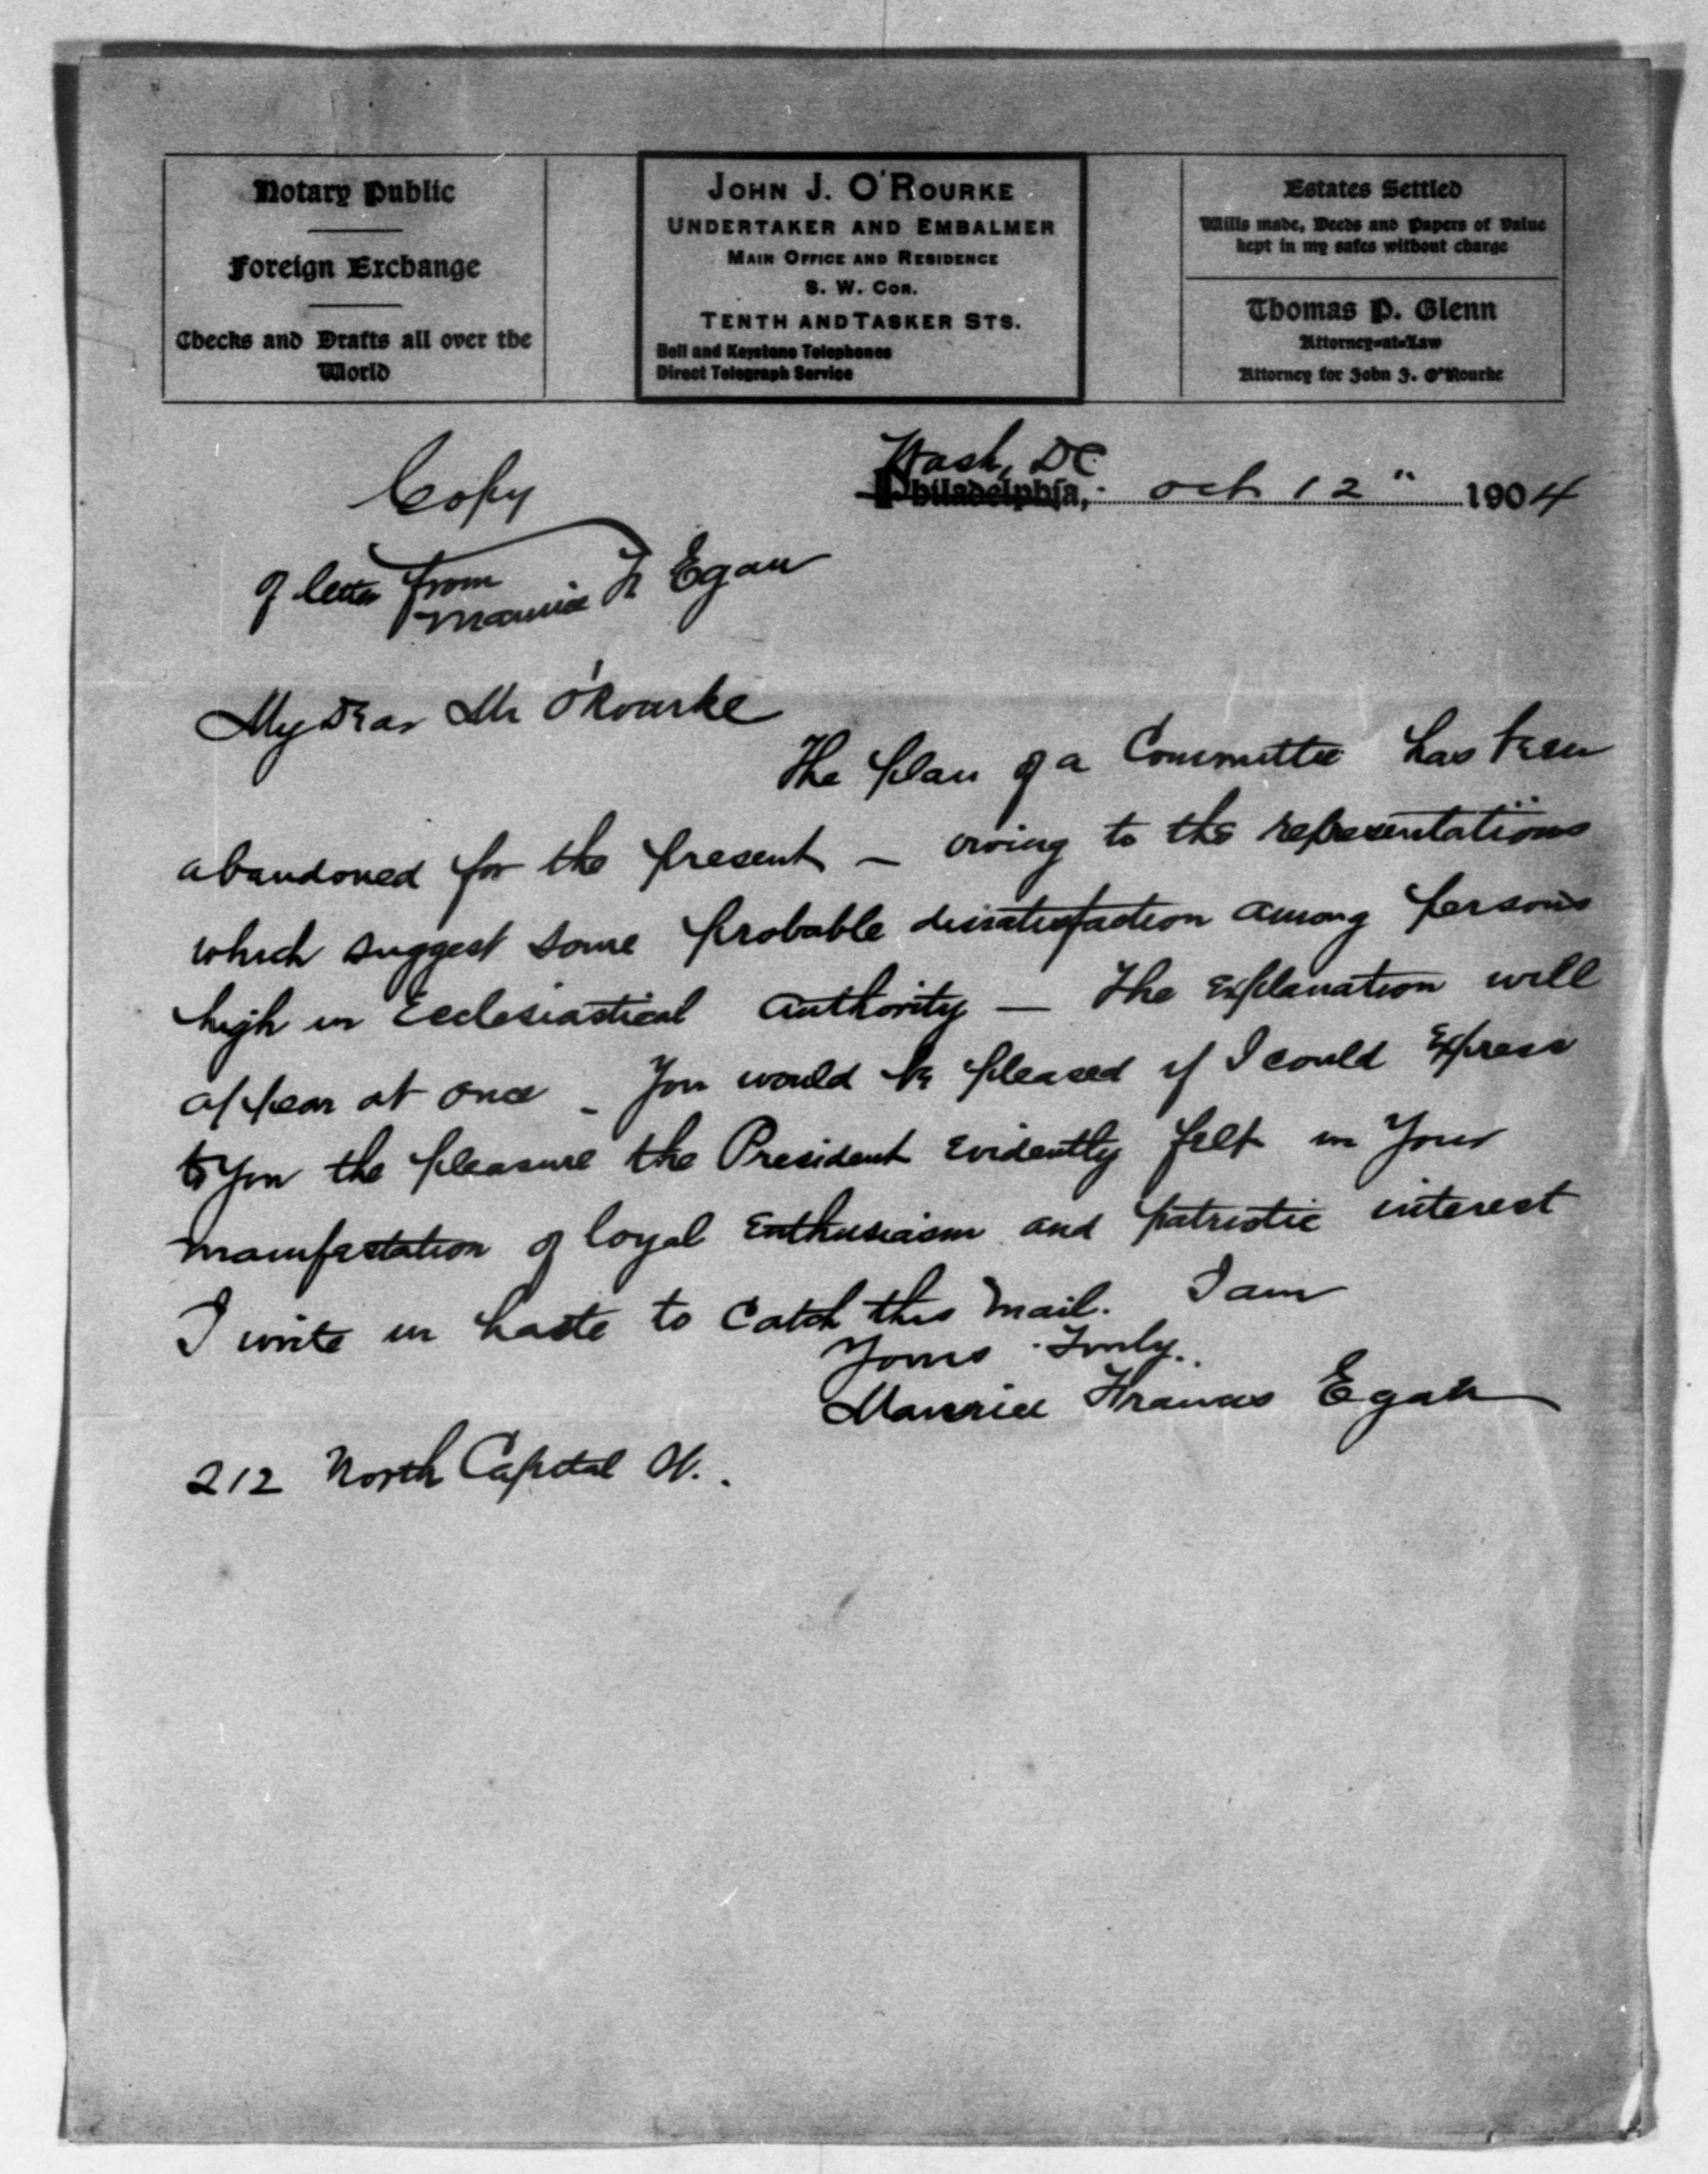 Notary Public
Foreign Exchange
Checks and Drafts all over the
World
JOHN J. O'ROURKE
UNDERTAKER AND EMBALMER
MAIN OFFICE AND RESIDENCE
S. W. COR.
TENTH AND TASKER STS.
Bell and Keystone Telephones
Direct Telegraph Service
Estates Settled
Wills made, Deeds and Papers of Value
kept in my safes without charge
Thomas P. Glenn
Attorney-at-Law
Attorney for John J. O'Rourke
Wash, DC
Philadelphia, Oct 12" 1904
Copy
of letter from
Maurice F Egan
My Dear Mr O'Rourke
The plan of a Committee has been
abandoned for the present – owing to the representations
which suggest some probable dissatisfaction among persons
high in Ecclesiastical Authority — The Explanation will
appear at once – You would be pleased if I could Express
to You the pleasure the President Evidently felt in Your
manifestation of loyal Enthusiasm and patriotic interest
I write in haste to Catch this Mail. I am
Yours Truly.
Maurice Francis Egan
212 North Capital St.